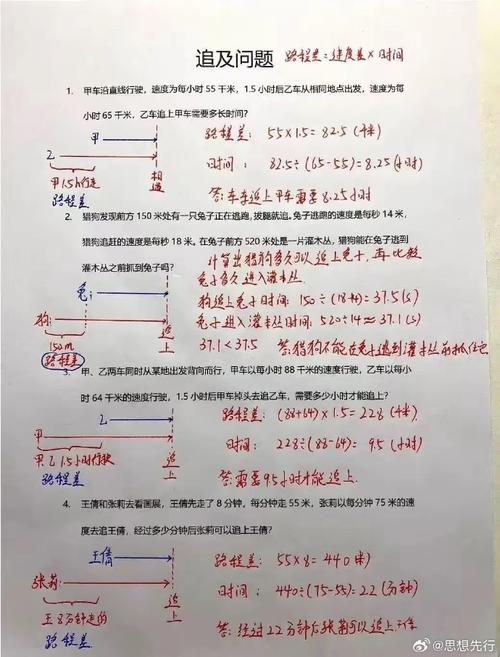 追及问题 路程差=速度差×时间
1. 甲车沿直线行驶，速度为每小时 55 千米，1.5 小时后乙车从相同地点出发，速度为每
小时 65 千米，乙车追上甲车需要多长时间？
甲
乙
甲1.5h行走
路程差
相遇
路程差：55×1.5=82.5(千米)
时间：82.5÷(65-55)=8.25(小时)
答：车追上甲车需要8.25小时
2. 猎狗发现前方 150 米处有一只兔子正在逃跑，拔腿就追。兔子逃跑的速度是每秒 14 米，
猎狗追赶的速度是每秒 18 米。在兔子前方 520 米处是一片灌木丛，猎狗能在兔子逃到
灌木丛之前抓到兔子吗？
计算出猎狗多久可以追上兔子，再比较
兔子多久进入灌木丛
兔：
狗：
150m
路程差
追上
狗追上兔子时间：150÷(18-14)=37.5(s)
兔子进入灌木丛时间：520÷14≈37.1(s)
37.1<37.5 答：猎狗不能在兔子逃到灌木丛前抓住它
3. 甲、乙两车同时从某地出发背向而行，甲车以每小时 88 千米的速度行驶，乙车以每小
时 64 千米的速度行驶，1.5 小时后甲车掉头去追乙车，需要多少小时才能追上？
乙
甲
甲、乙1.5小时行驶
路程差
追上
路程差：(88+64)×1.5=228(千米)
时间：228÷(88-64)=9.5(小时)
答：需要9.5小时才能追上
4. 王倩和张莉去看画展，王倩先走了 8 分钟，每分钟走 55 米，张莉以每分钟 75 米的速
度去追王倩，经过多少分钟后张莉可以追上王倩？
王倩
张莉：
王8分钟走的
路程差
追上
路程差：55×8=440(米)
时间：440÷(75-55)=22(分钟)
答：经过22分钟后张莉可以追上王倩
@思想先行